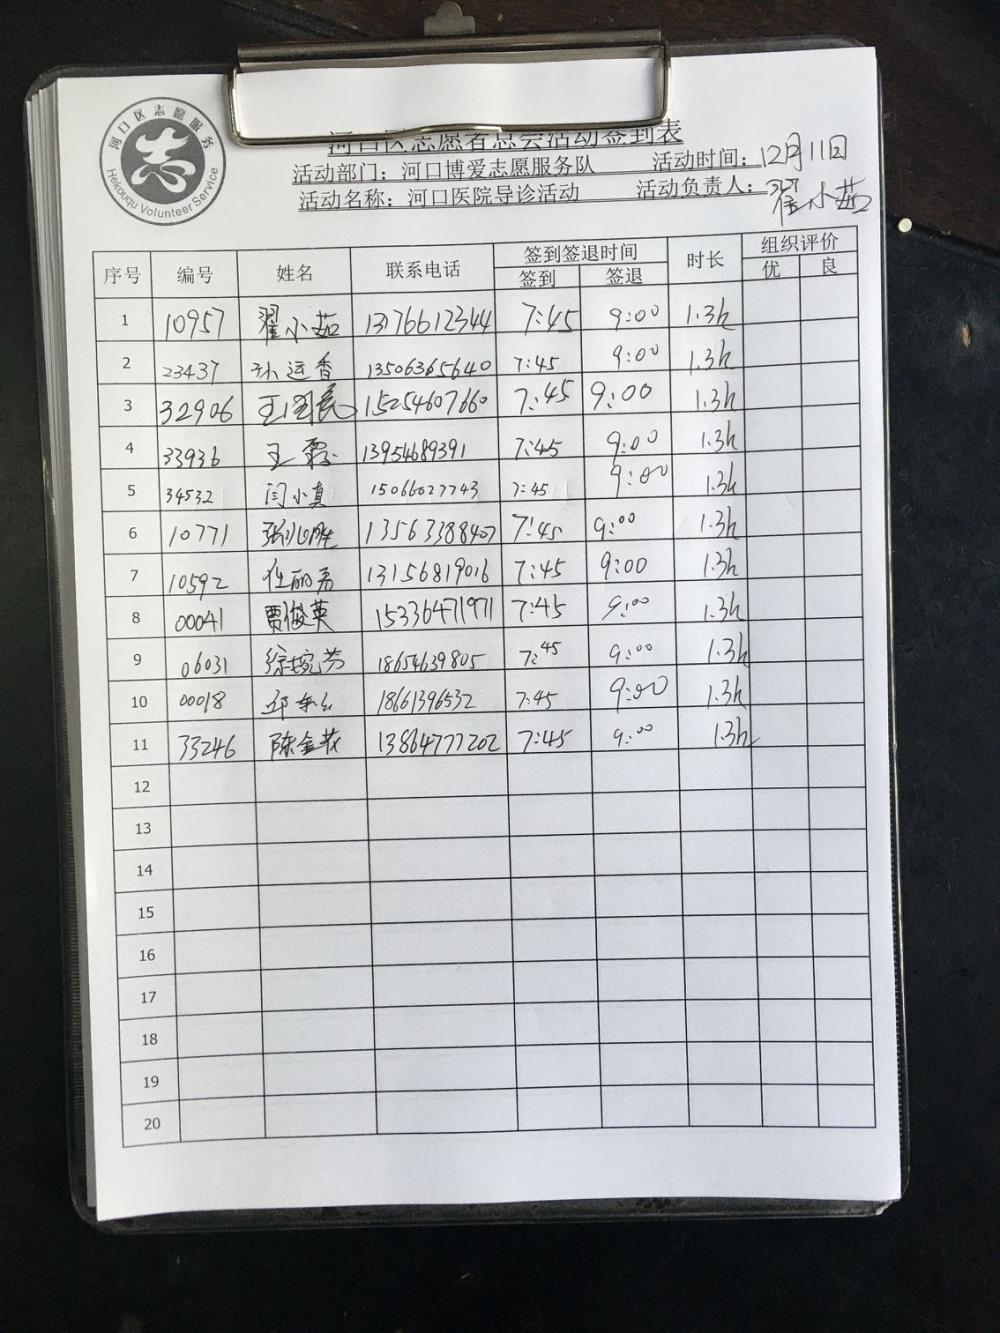 河口区志愿服务
志
Hekouqu Volunteer Service
河口区志愿者总会活动签到表
活动部门：河口博爱志愿服务队 活动时间：12月11日
活动名称：河口医院导诊活动 活动负责人：翟小茹
序号 编号 姓名 联系电话 签到签退时间 时长 组织评价
签到 签退 优 良
1 10957 翟小茹 13176612344 7:45 9:00 1.3h
2 23437 孙运香 13506365640 7:45 9:00 1.3h
3 32906 王国民 15254607660 7:45 9:00 1.3h
4 33936 王霞 13954689391 7:45 9:00 1.3h
5 34532 闫小真 15066027743 7:45 9:00 1.3h
6 10771 张心胜 13563388407 7:45 9:00 1.3h
7 10592 任丽芳 13156819016 7:45 9:00 1.3h
8 00041 贾俊英 15336471971 7:45 9:00 1.3h
9 06031 徐婉芳 18654639805 7:45 9:00 1.3h
10 00018 邱 18661396532 7:45 9:00 1.3h
11 33246 陈金花 13864777202 7:45 9:00 1.3h
12
13
14
15
16
17
18
19
20